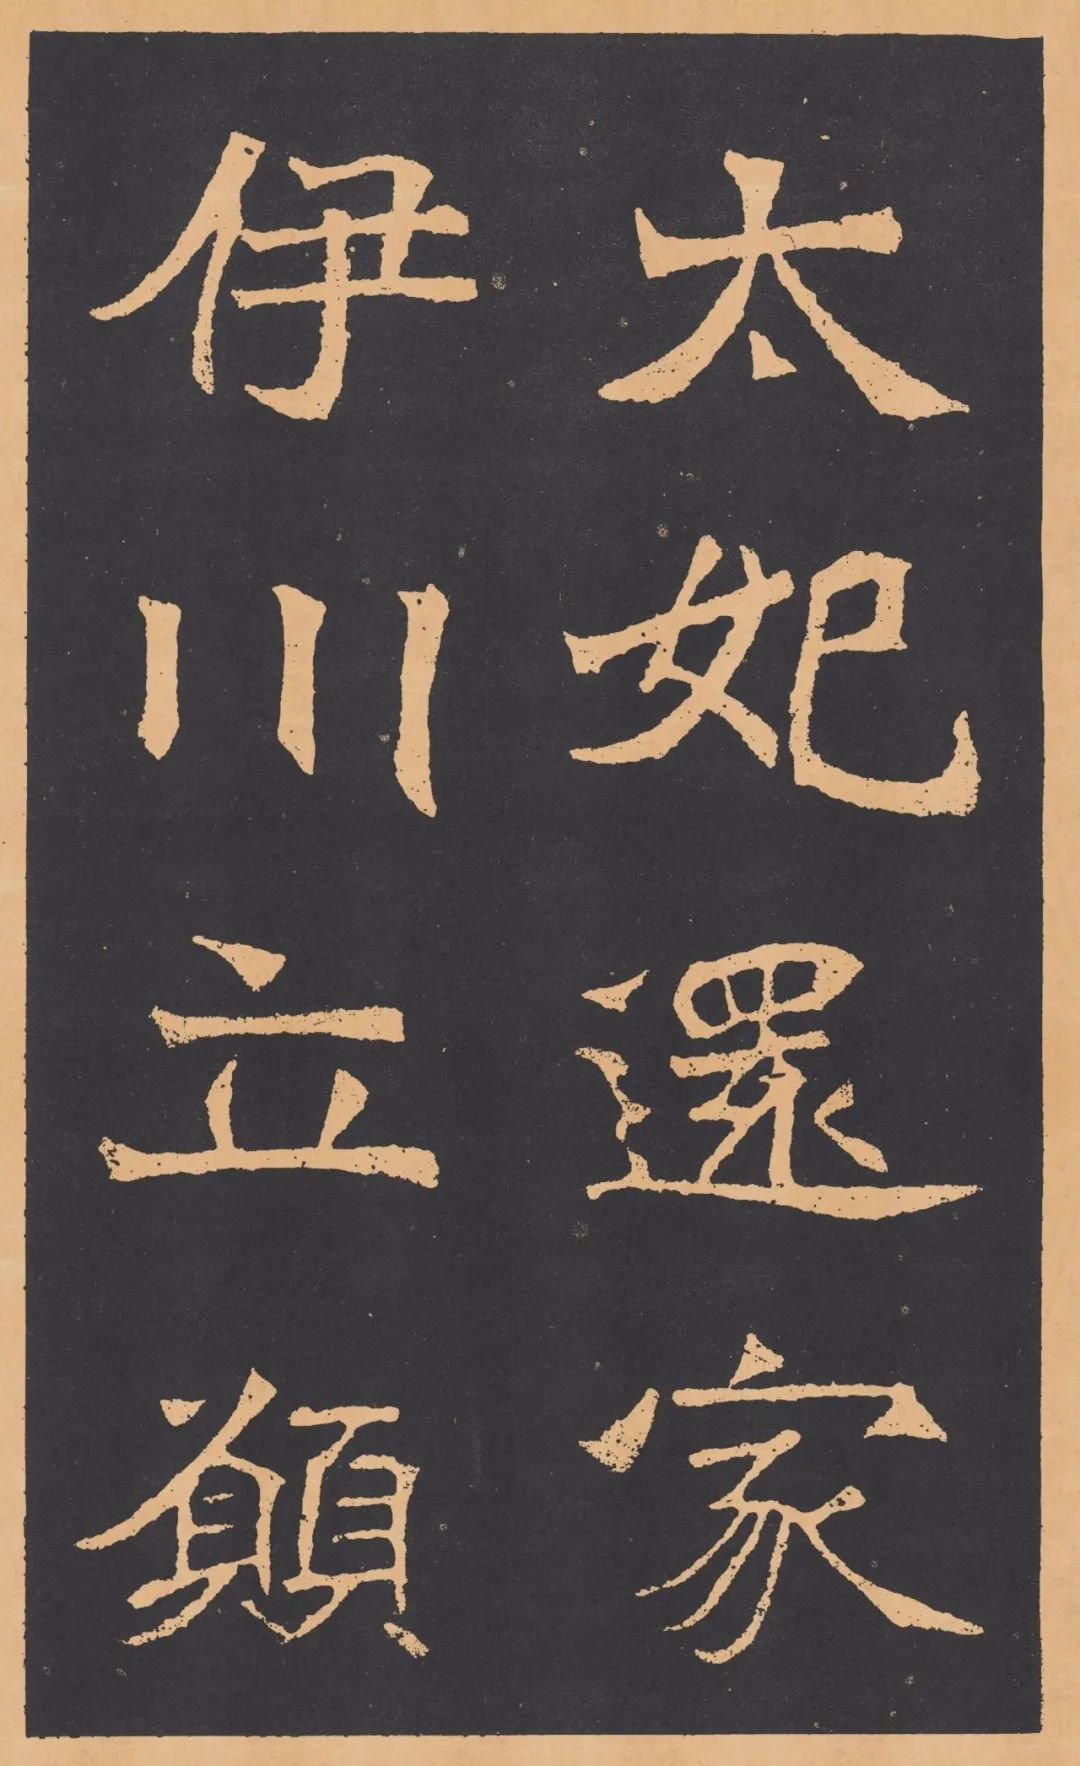 太妃還家
伊川立願